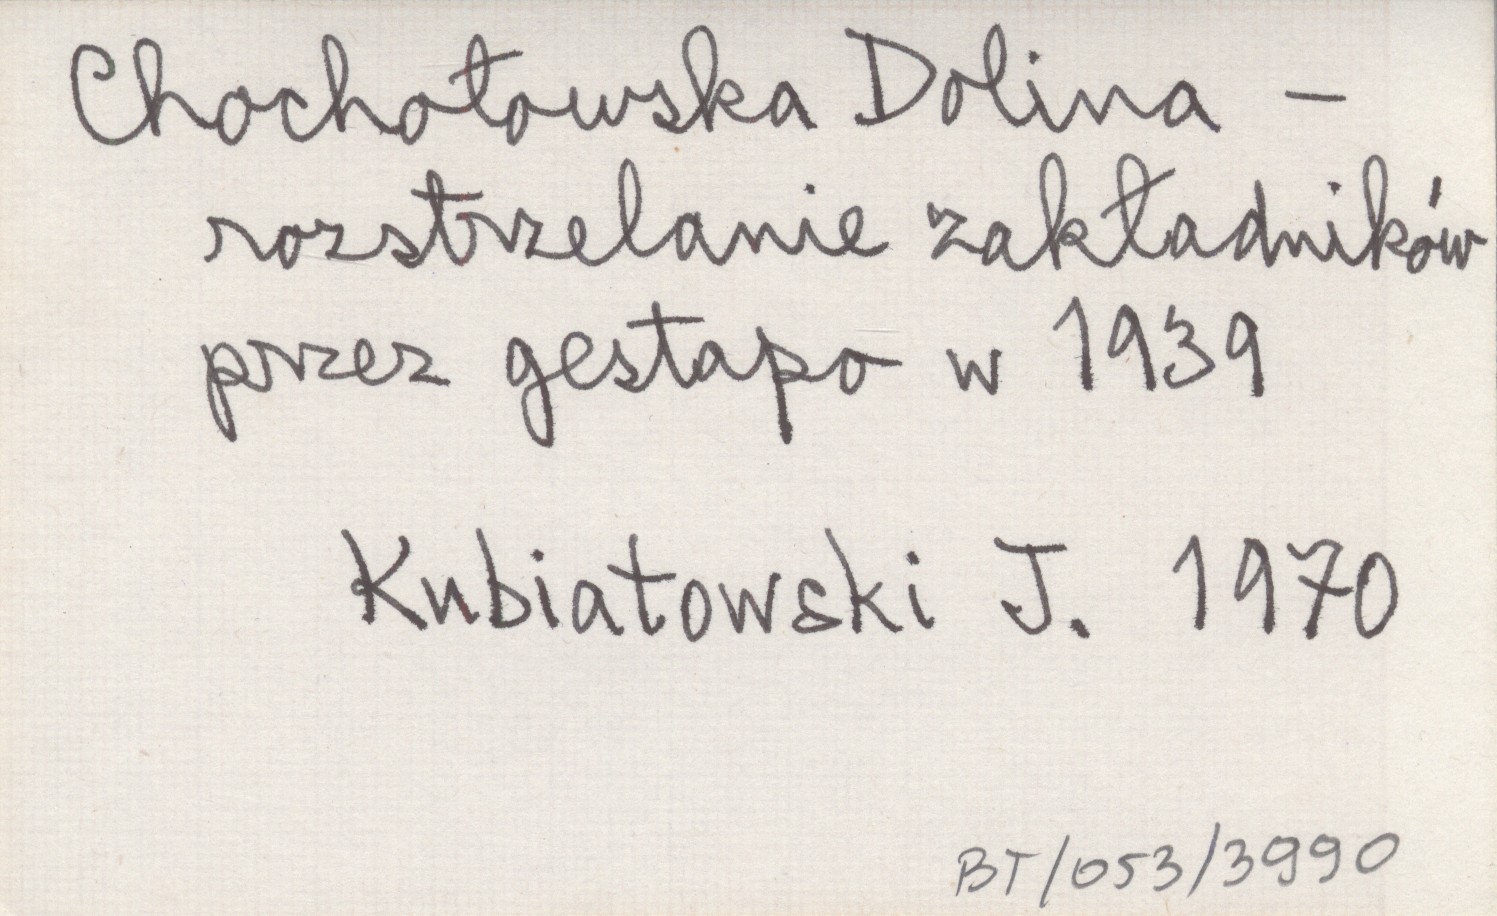 Chochołowska Dolina –
rozstrzelanie zakładników
przez gestapo w 1939
Kubiatowski J. 1970
BT/053/3990